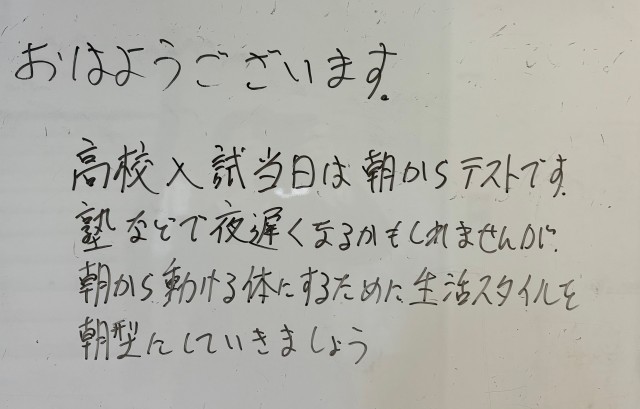 おはようございます.
高校入試当日は朝からテストです.
塾などで夜遅くなるかもしれませんが.
朝から動ける体にするために生活スタイルを
朝型にしていきましょう